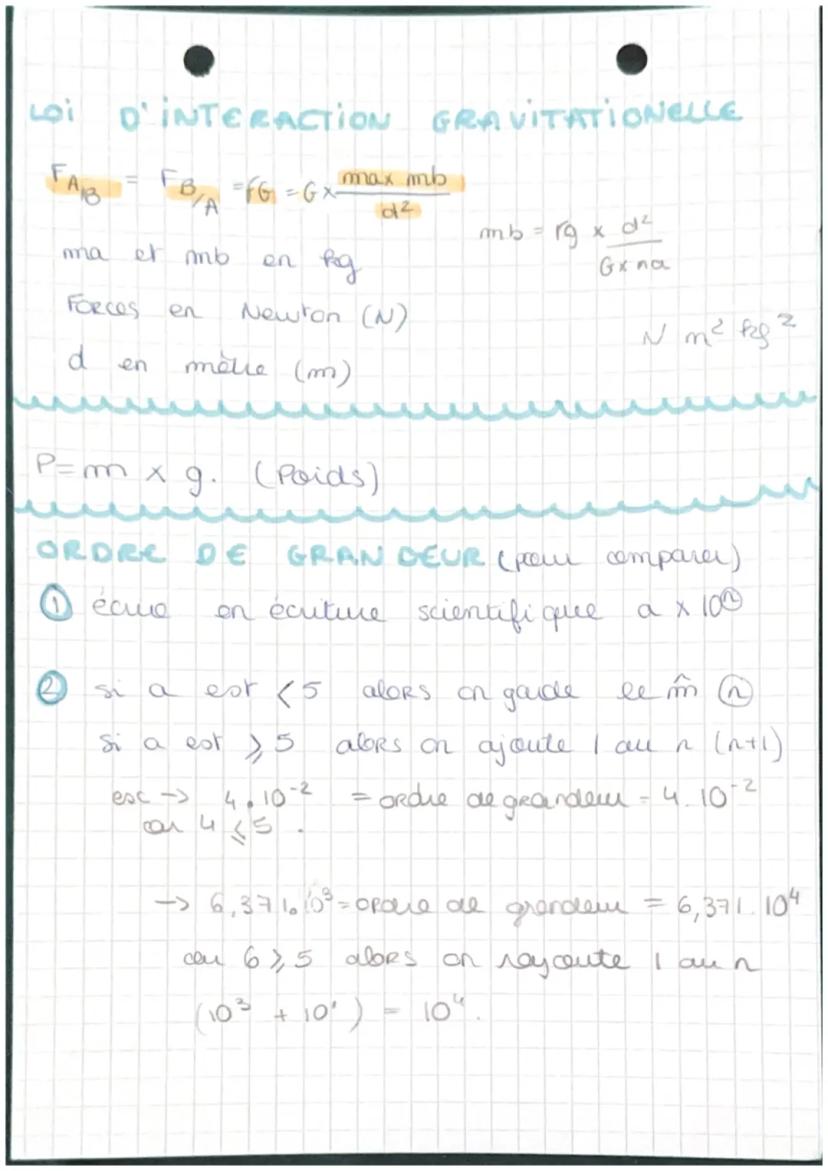 LOI D'INTERACTION GRAVITATIONELLE
F A/B = F B/A = FG = G x ma x mb / d²
mb = Fg x d² / G x ma
ma et mb en kg
Forces en Newton (N)
N m² kg²
d en mètre (m)
P = m x g. (Poids)
ORDRE DE GRANDEUR (pour comparer)
① écrire en écriture scientifique a x 10ⁿ
② si a est < 5 alors on garde le m̂ n
si a est ⩾ 5 alors on ajoute 1 au n (n+1)
ex -> 4.10⁻² = ordre de grandeur = 4.10⁻²
car 4 ⩽ 5.
-> 6,371.10³ = ordre de grandeur = 6,371.10⁴
car 6 ⩾ 5 alors on rajoute 1 au n
(10³ + 10¹) = 10⁴.